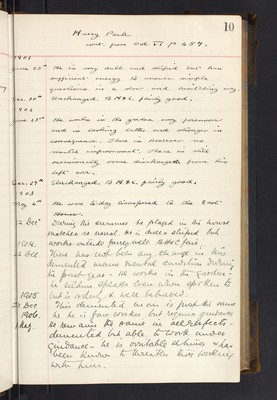 10
Harry Park
cont. from Vol VI p 457.
1901
June 25th He is very dull and stupid but has
sufficient energy to answer simple
questions in a slow and hesitating way.
Dec. 30th Unchanged. B H & C. fairly good.
1902
June 23rd He works in the garden very
and is looking better and stronger in
consequence. There is however no
mental improvement. There is still
occasionally some discharge from his
left ear.
Dec. 29th Unchanged. B H & C. fairly good.
1903
May 2nd He was to-day transferred to the East
House.
Dec During this summer he played in the
matches as usual. He is dull & stupid but
works outside fairly well. B H & C fair.
1904. There has not been any change in this
demented man's mental condition during
the past year. He works in the garden -
he seldom speaks even when spoken to
but is orderly & well behaved.
1905
Dec This demented man is just the same
1906. he is a fair worker but requires guidance
Aug. He remains the same in all respects -
demented but able to work under
guidance - he is irritable at times & has
been known to threaten his
with him.